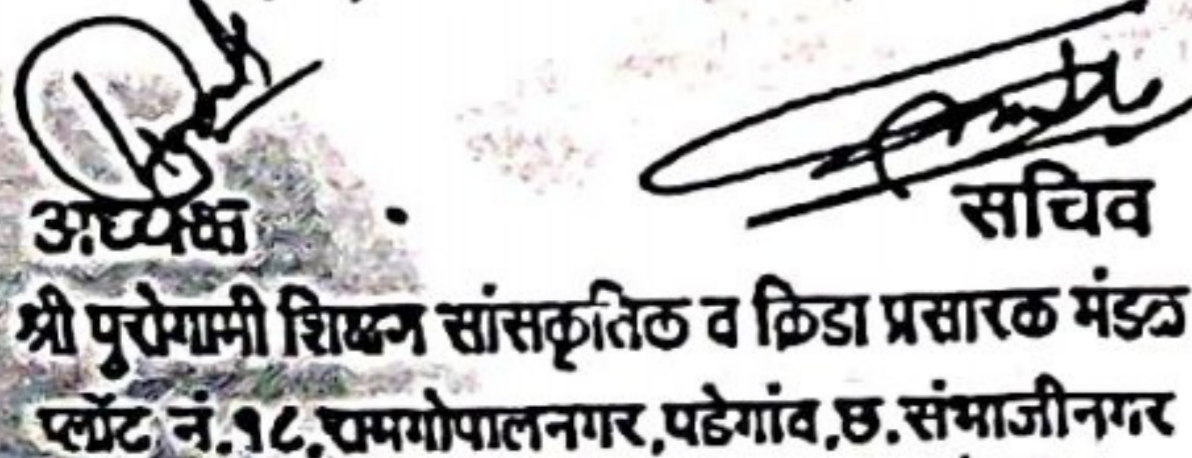 अध्यक्ष सचिव
श्री पुरोगामी शिक्षण सांसकृतिक व क्रिडा प्रसारक मंडळ
प्लॉट नं.१८,रामगोपालनगर,पडेगांव,छ.संभाजीनगर